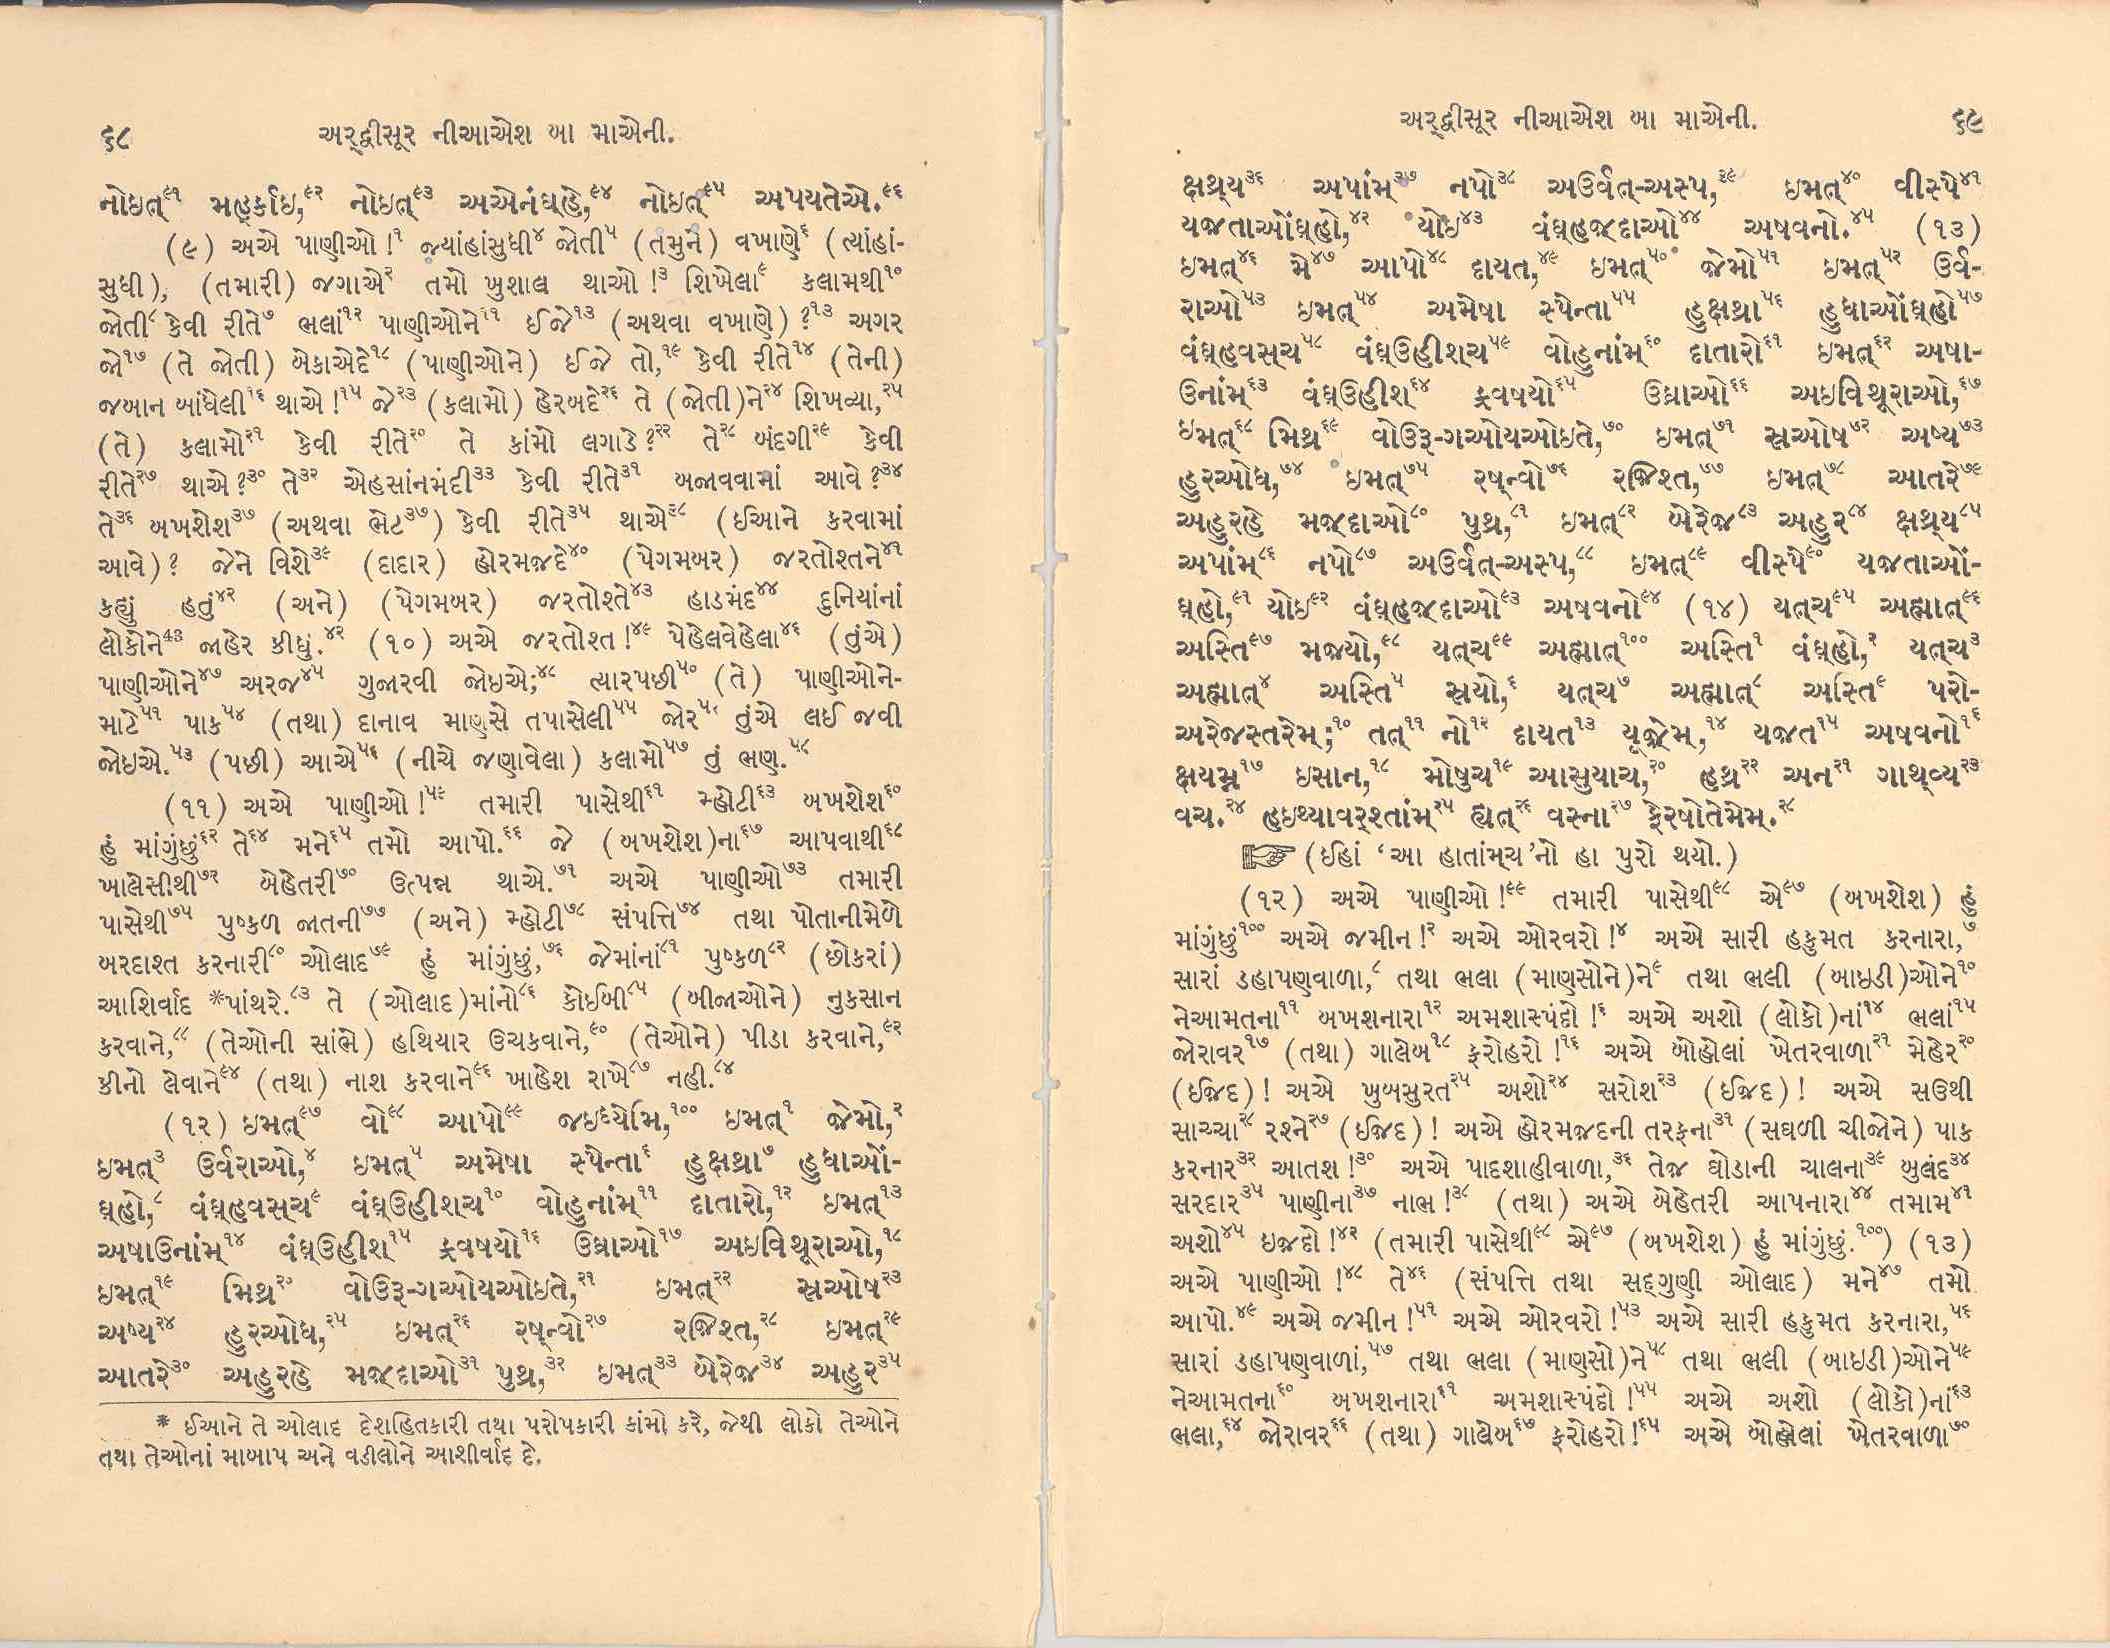 ૬૮ અરદ્વીસૂર નીઆએશ બા માએની.
નોઇત્૯૧ મહર્કાઇ,૯૨ નોઇત્૯૩ અએનંઘ્‌હે,૯૪ નોઇત્૯૫ અપયતેએ.૯૬
(૯) અએ પાણીઓ!૧ જ્યાંહાંસુધી૪ જોતી૫ (તમુને) વખાણે૬ (ત્યાંહાં-
સુધી), (તમારી) જગાએ૨ તમો ખુશાલ થાઓ!૩ શિખેલા૯ કલામથી૧૦
જોતી૮ કેવી રીતે૭ ભલાં૧૨ પાણીઓને૧૧ ઈજે૧૩ (અથવા વખાણે)?૧૩ અગર
જો૧૭ (તે જોતી) બેકાએદે૧૮ (પાણીઓને) ઈજે તો,૧૯ કેવી રીતે૧૪ (તેની)
જબાન બાંધેલી૧૬ થાએ!૧૫ જે૨૩ (કલામો) હેરબદે૨૬ તે (જોતી)ને૨૪ શિખવ્યા,૨૫
(તે) કલામો૨૧ કેવી રીતે૨૦ તે કાંમો લગાડે?૨૨ તે૨૮ બંદગી૨૯ કેવી
રીતે૨૭ થાએ?૩૦ તે૩૨ એહસાંનમંદી૩૩ કેવી રીતે૩૧ બજાવવામાં આવે?૩૪
તે૩૬ બખશેશ૩૭ (અથવા ભેટ૩૭) કેવી રીતે૩૫ થાએ૩૮ (ઈઆને કરવામાં
આવે)? જેને વિશે૩૯ (દાદાર) હોરમજદે૪૦ (પેગમબર) જરતોશ્તને૪૧
કહ્યું હતું૪૨ (અને) (પેગમબર) જરતોશ્તે૪૩ હાડમંદ૪૪ દુનિયાંનાં
લોકોને43 જાહેર કીધું.૪૨ (૧૦) અએ જરતોશ્ત!૪૯ પેહેલવેહેલા૪૬ (તુંએ)
પાણીઓને૪૭ અરજ૪૫ ગુજારવી જોઇએ;૪૮ ત્યારપછી૫૦ (તે) પાણીઓને-
માટે૫૧ પાક૫૪ (તથા) દાનાવ માણસે તપાસેલી૫૫ જોર૫૨ તુંએ લઈ જવી
જોઇએ.૫૩ (પછી) આએ૫૬ (નીચે જણાવેલા) કલામો૫૭ તું ભણ.૫૮
(૧૧) અએ પાણીઓ!૫૯ તમારી પાસેથી૬૧ મ્હોટી૬૩ બખશેશ૬૦
હું માંગુંછું૬૨ તે૬૪ મને૬૫ તમો આપો.૬૬ જે (બખશેશ)ના૬૭ આપવાથી૬૮
ખાલેસીથી૭૨ બેહેતરી૭૦ ઉત્પન્ન થાએ.૭૧ અએ પાણીઓ૭૩ તમારી
પાસેથી૭૫ પુષ્કળ જાતની૭૭ (અને) મ્હોટી૭૮ સંપત્તિ૭૪ તથા પોતાનીમેળે
બરદાશ્ત કરનારી૮૦ ઓલાદ૭૯ હું માંગુંછું,૭૬ જેમાંનાં૮૧ પુષ્કળ૮૨ (છોકરાં)
આશિર્વાદ *પાંથરે.૮૩ તે (ઓલાદ)માંનો૮૬ કોઈબી૮૫ (બીજાઓને) નુકસાન
કરવાને,૮૮ (તેઓની સાંભે) હથિયાર ઉચકવાને,૯૦ (તેઓને) પીડા કરવાને,૯૨
કીનો લેવાને૯૪ (તથા) નાશ કરવાને૯૬ ખાહેશ રાખે૮૭ નહી.૮૪
(૧૨) ઇમત્૯૭ વો૯૮ આપો૯૯ જઇદ્યેમિ,૧૦૦ ઇમત્૧ જેમો,૨
ઇમત્૩ ઉર્વરાઓ,૪ ઇમત્૫ અમેષા સ્પેન્તા૬ હુક્ષથ્રા૭ હુધાઓં-
ઘ્‌હો,૮ વંઘ્‌હવસ્‌ચ૯ વંઘ્‌ઉહીશ્‌ચ૧૦ વોહુનાંમ્૧૧ દાતારો,૧૨ ઇમત્૧૩
અષાઉનાંમ્૧૪ વંઘ્‌ઉહીશ્૧૫ ફ્રવષયો૧૬ ઉઘ્રાઓ૧૭ અઇવિથૂરાઓ,૧૮
ઇમત્૧૯ મિથ્ર૨૦ વોઉરૂ-ગઓયઓઇતે,૨૧ ઇમત્૨૨ સ્રઓષ૨૩
અષ્ય૨૪ હુરઓધ,૨૫ ઇમત્૨૬ રષ્ન્વો૨૭ રજિશ્ત,૨૮ ઇમત્૨૯
આતરે૩૦ અહુરહે મજદાઓ૩૧ પુથ્ર,૩૨ ઇમત્૩૩ બેરેજ૩૪ અહુર૩૫
* ઈઆને તે ઓલાદ દેશહિતકારી તથા પરોપકારી કાંમો કરે, જેથી લોકો તેઓને
તથા તેઓનાં માબાપ અને વડીલોને આશીર્વાદ દે.
અરદ્વીસૂર નીઆએશ બા માએની. ૬૯
ક્ષથ્ર્ય૩૬ અપાંમ્૩૭ નપો૩૮ અઉર્વત્-અસ્પ,૩૯ ઇમત્૪૦ વીસ્પે૪૧
યજતાઓંઘ્‌હો,૪૨ યોઇ૪૩ વંઘ્‌હજદાઓ૪૪ અષવનો.૪૫ (૧૩)
ઇમત્૪૬ મે૪૭ આપો૪૮ દાયત,૪૯ ઇમત્૫૦ જેમો૫૧ ઇમત્૫૨ ઉર્વ-
રાઓ૫૩ ઇમત્૫૪ અમેષા સ્પેન્તા૫૫ હુક્ષથ્રા૫૬ હુધાઓંઘ્‌હો૫૭
વંઘ્‌હવસ્‌ચ૫૮ વંઘ્‌ઉહીશ્‌ચ૫૯ વોહુનાંમ્૬૦ દાતારો૬૧ ઇમત્૬૨ અષા-
ઉનાંમ્૬૩ વંઘ્‌ઉહીશ્૬૪ ફ્રવષયો૬૫ ઉઘ્રાઓ૬૬ અઇવિથૂરાઓ,૬૭
ઇમત્૬૮ મિથ્ર૬૯ વોઉરૂ-ગઓયઓઇતે,૭૦ ઇમત્૭૧ સ્રઓષ૭૨ અષ્ય૭૩
હુરઓધ,૭૪ ઇમત્૭૫ રષ્ન્વો૭૬ રજિશ્ત,૭૭ ઇમત્૭૮ આતરે૭૯
અહુરહે મજદાઓ૮૦ પુથ્ર,૮૧ ઇમત્૮૨ બેરેજ૮૩ અહુર૮૪ ક્ષથ્ર્ય૮૫
અપાંમ્૮૬ નપો૮૭ અઉર્વત્-અસ્પ,૮૮ ઇમત્૮૯ વીસ્પે૯૦ યજતાઓં-
ઘ્‌હો,૯૧ યોઇ૯૨ વંઘ્‌હજદાઓ૯૩ અષવનો૯૪ (૧૪) યત્‌ચ૯૫ અહ્માત્૯૬
અસ્તિ૯૭ મજયો,૯૮ યત્‌ચ૯૯ અહ્માત્૧૦૦ અસ્તિ૧ વંઘ્‌હો,૨ યત્‌ચ૩
અહ્માત્૪ અસ્તિ૫ સ્રયો,૬ યત્‌ચ૭ અહ્માત્૮ અસ્તિ૯ પરો-
અરેજસ્તરેમ;૧૦ તત્૧૧ નો૧૨ દાયત૧૩ યૂજેમ્,૧૪ યજત૧૫ અષવનો૧૬
ક્ષયમ્ન૧૭ ઇસાન,૧૮ મોષુચ૧૯ આસુયાચ,૨૦ હથ્ર૨૨ અન૨૧ ગાથ્વ્ય૨૩
વચ.૨૪ હઇથ્યાવરશ્તાંમ્૨૫ હ્યત્૨૬ વસ્ના૨૭ ફેરષોતેમેમ્.૨૮
☞ (ઈહાં ‘આ હાતાંમ્‌ચ’નો હા પુરો થયો.)
(૧૨) અએ પાણીઓ!૯૯ તમારી પાસેથી૯૮ એ૯૭ (બખશેશ) હું
માંગુંછું૧૦૦ અએ જમીન!૨ અએ ઓરવરો!૪ અએ સારી હકુમત કરનારા,૭
સારાં ડહાપણવાળા,૮ તથા ભલા (માણસોને)ને૯ તથા ભલી (બાઇડી)ઓને૧૦
નેઆમતના૧૧ બખશનારા૧૨ અમશાસ્પંદો!૬ અએ અશો (લોકો)નાં૧૪ ભલાં૧૫
જોરાવર૧૭ (તથા) ગાલેબ૧૮ ફરોહરો!૧૬ અએ બોહોલાં ખેતરવાળા૨૧ મેહેર૨૦
(ઈજદ)! અએ ખુબસુરત૨૫ અશો૨૪ સરોશ૨૩ (ઈજદ)! અએ સઉથી
સાચ્ચા૨૮ રશ્ને૨૭ (ઈજદ)! અએ હોરમજદની તરફના૩૧ (સઘળી ચીજોને) પાક
કરનાર૩૨ આતશ!૩૦ અએ પાદશાહીવાળા,૩૬ તેજ ઘોડાની ચાલના૩૯ બુલંદ૩૪
સરદાર૩૫ પાણીના૩૭ નાભ!૩૮ (તથા) અએ બેહેતરી આપનારા૪૪ તમામ૪૧
અશો૪૫ ઇજદો!૪૨ (તમારી પાસેથી૯૮ એ૯૭ (બખશેશ) હું માંગુંછું.૧૦૦) (૧૩)
અએ પાણીઓ!૪૮ તે૪૬ (સંપત્તિ તથા સદ્‌ગુણી ઓલાદ) મને૪૭ તમો
આપો.૪૯ અએ જમીન!૫૧ અએ ઓરવરો!૫૩ અએ સારી હકુમત કરનારા,૫૬
સારાં ડહાપણવાળાં,૫૭ તથા ભલા (માણસો)ને૫૮ તથા ભલી (બાઇડી)ઓને૫૯
નેઆમતના૬૦ બખશનારા૬૧ અમશાસ્પંદો!૫૫ અએ અશો (લોકો)નાં૬૩
ભલા,૬૪ જોરાવર૬૬ (તથા) ગાલેબ૬૭ ફરોહરો!૬૫ અએ બોહોલાં ખેતરવાળા૭૦